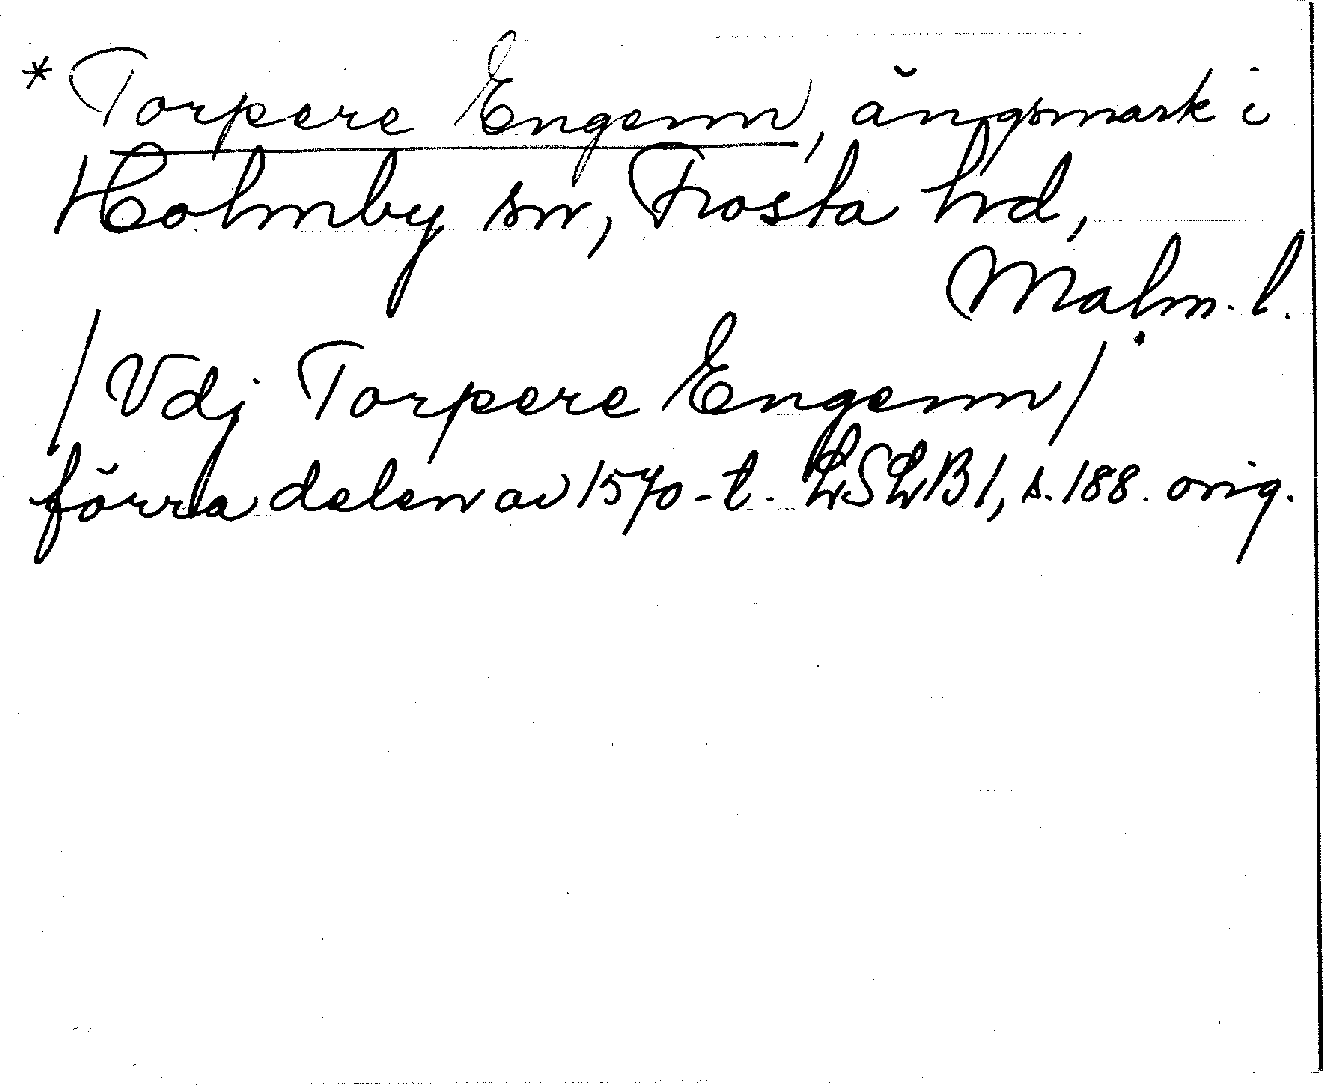 * Torpere Engenn, ängsmark i
Holmby sn, Frosta hd,
Malm. l.
/Vdj Torpere Engenn/
förra delen av 1570-t. LSLB I, s. 188. orig.